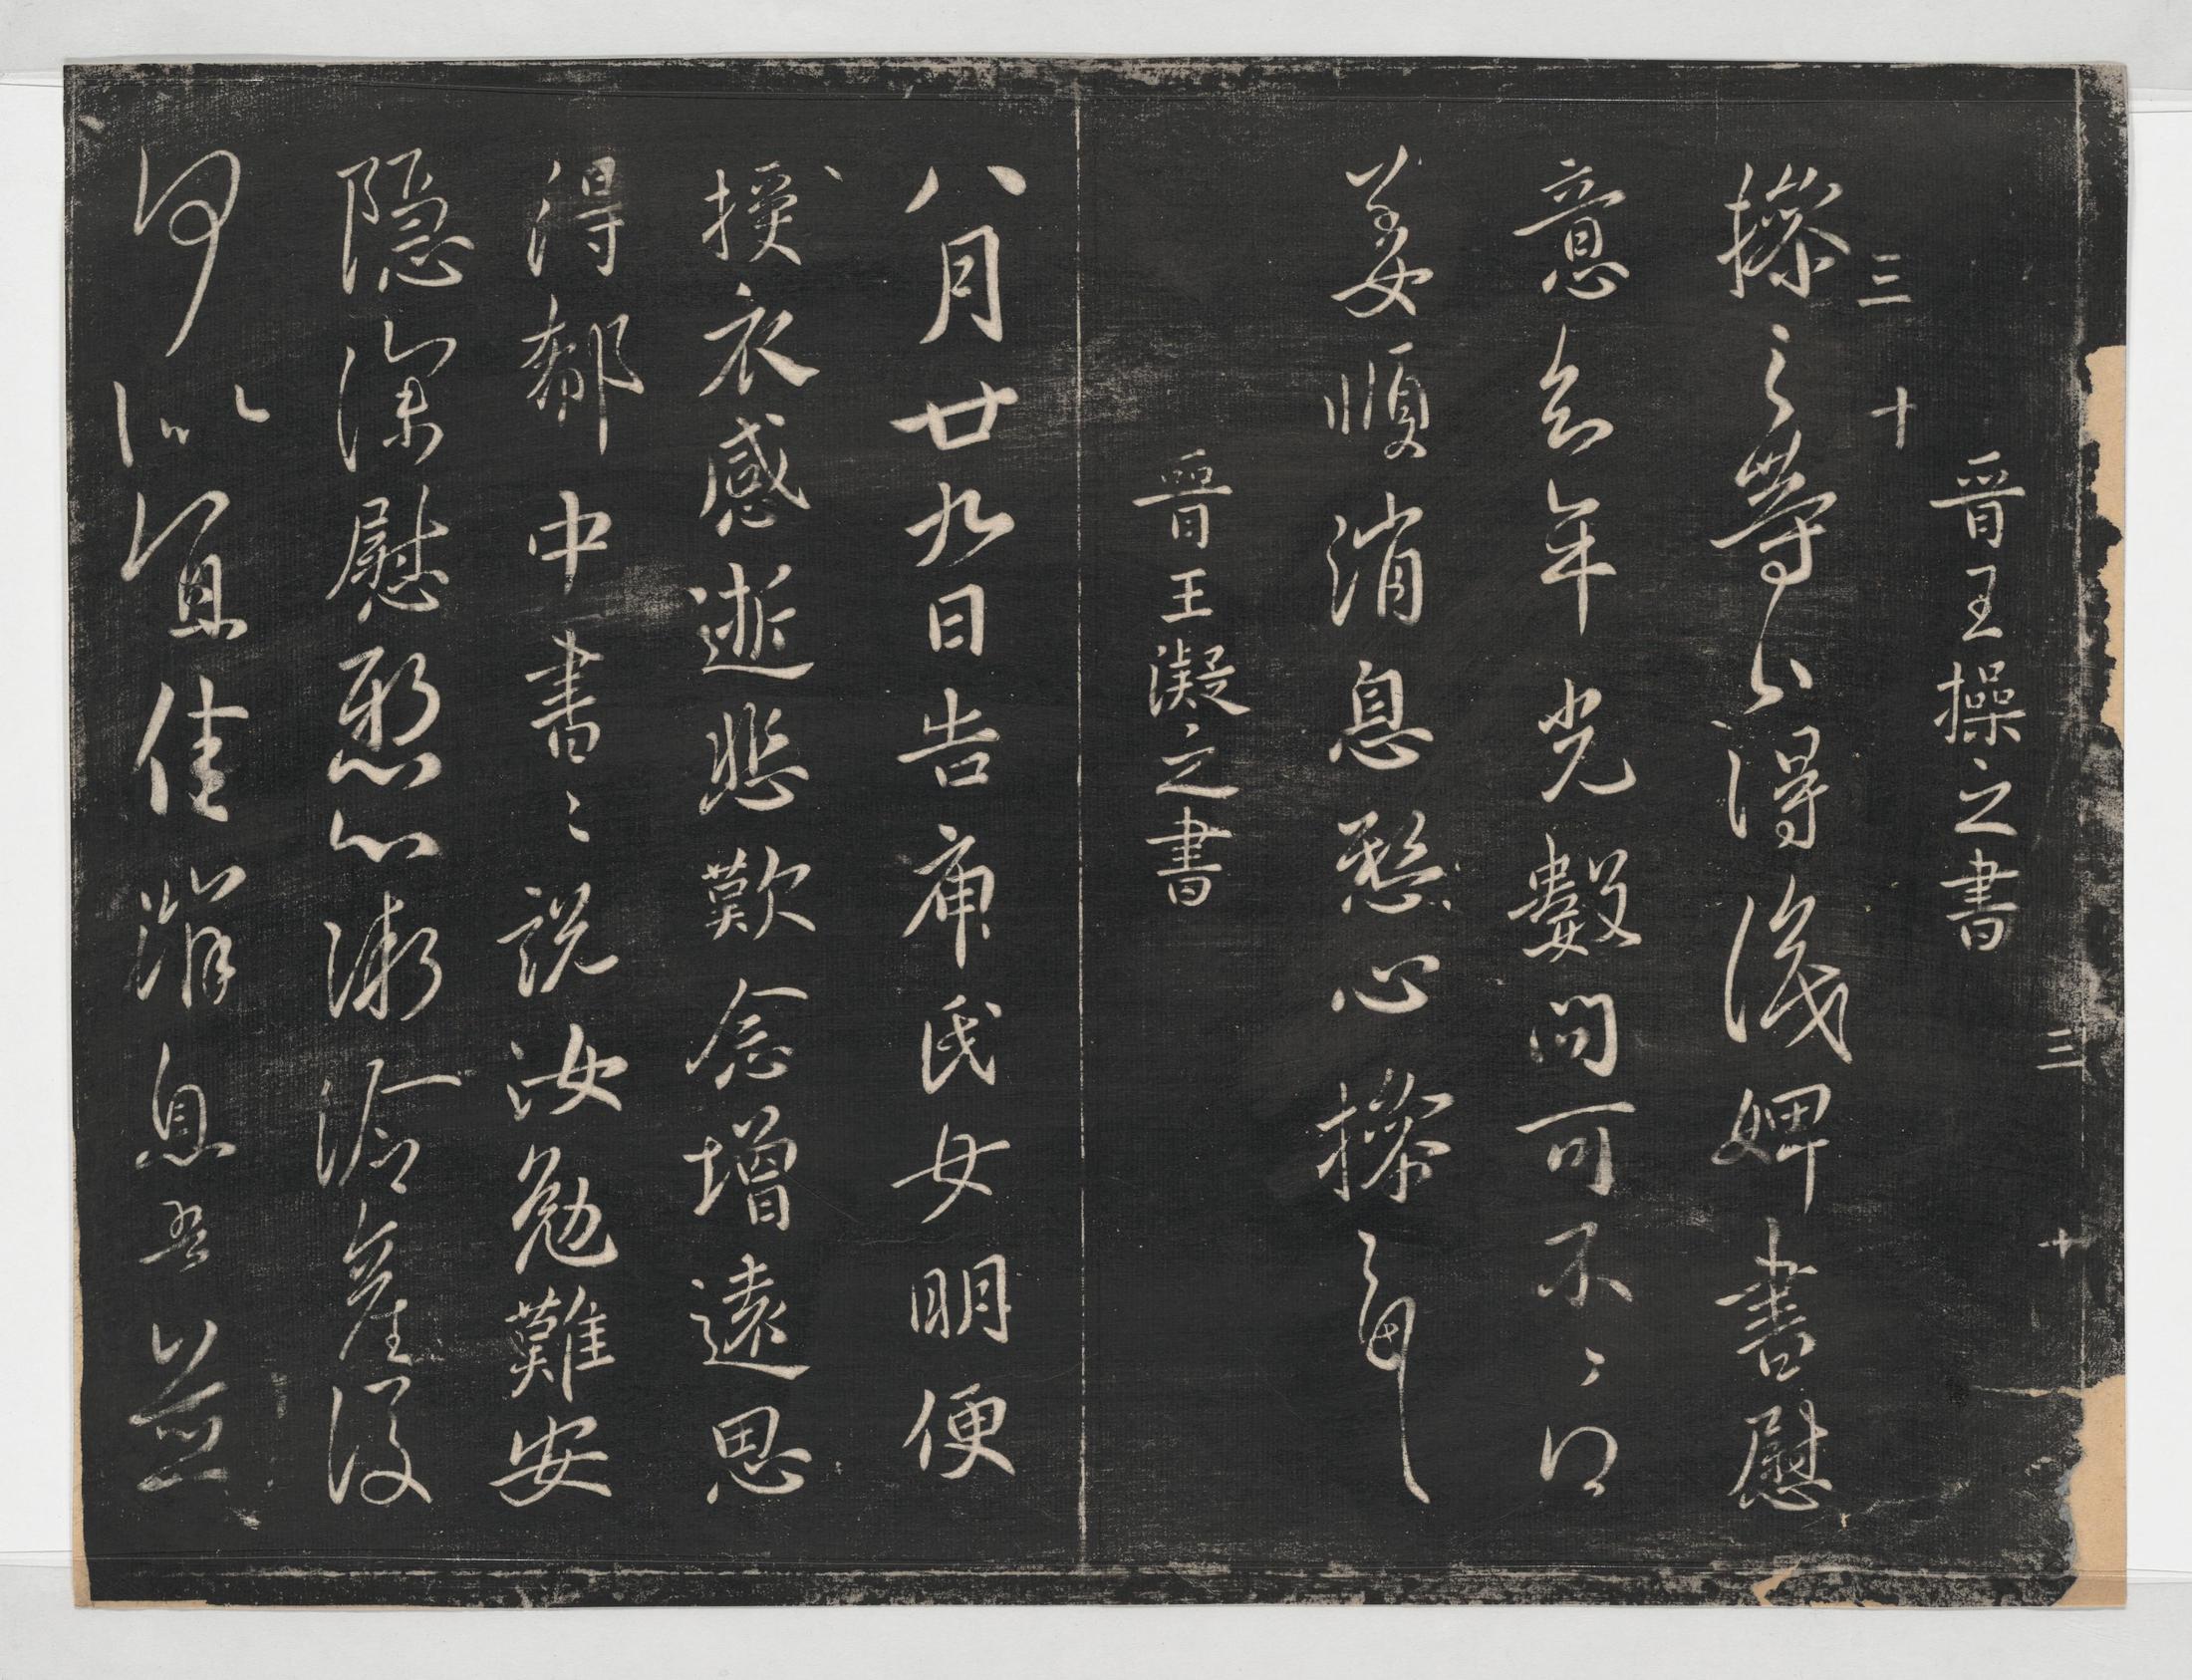 晉王操之書
三
十
三
十
操之等公得識婢書慰
意去年光數問可不〻得
姜順消息愁心操之
晉王凝之書
八月廿九日告庾氏女明便
授衣感逝悲歎念增遠思
得郗中書〻說汝勉難安
隱深慰懸心漸冷產後
何以宜佳消息吾並